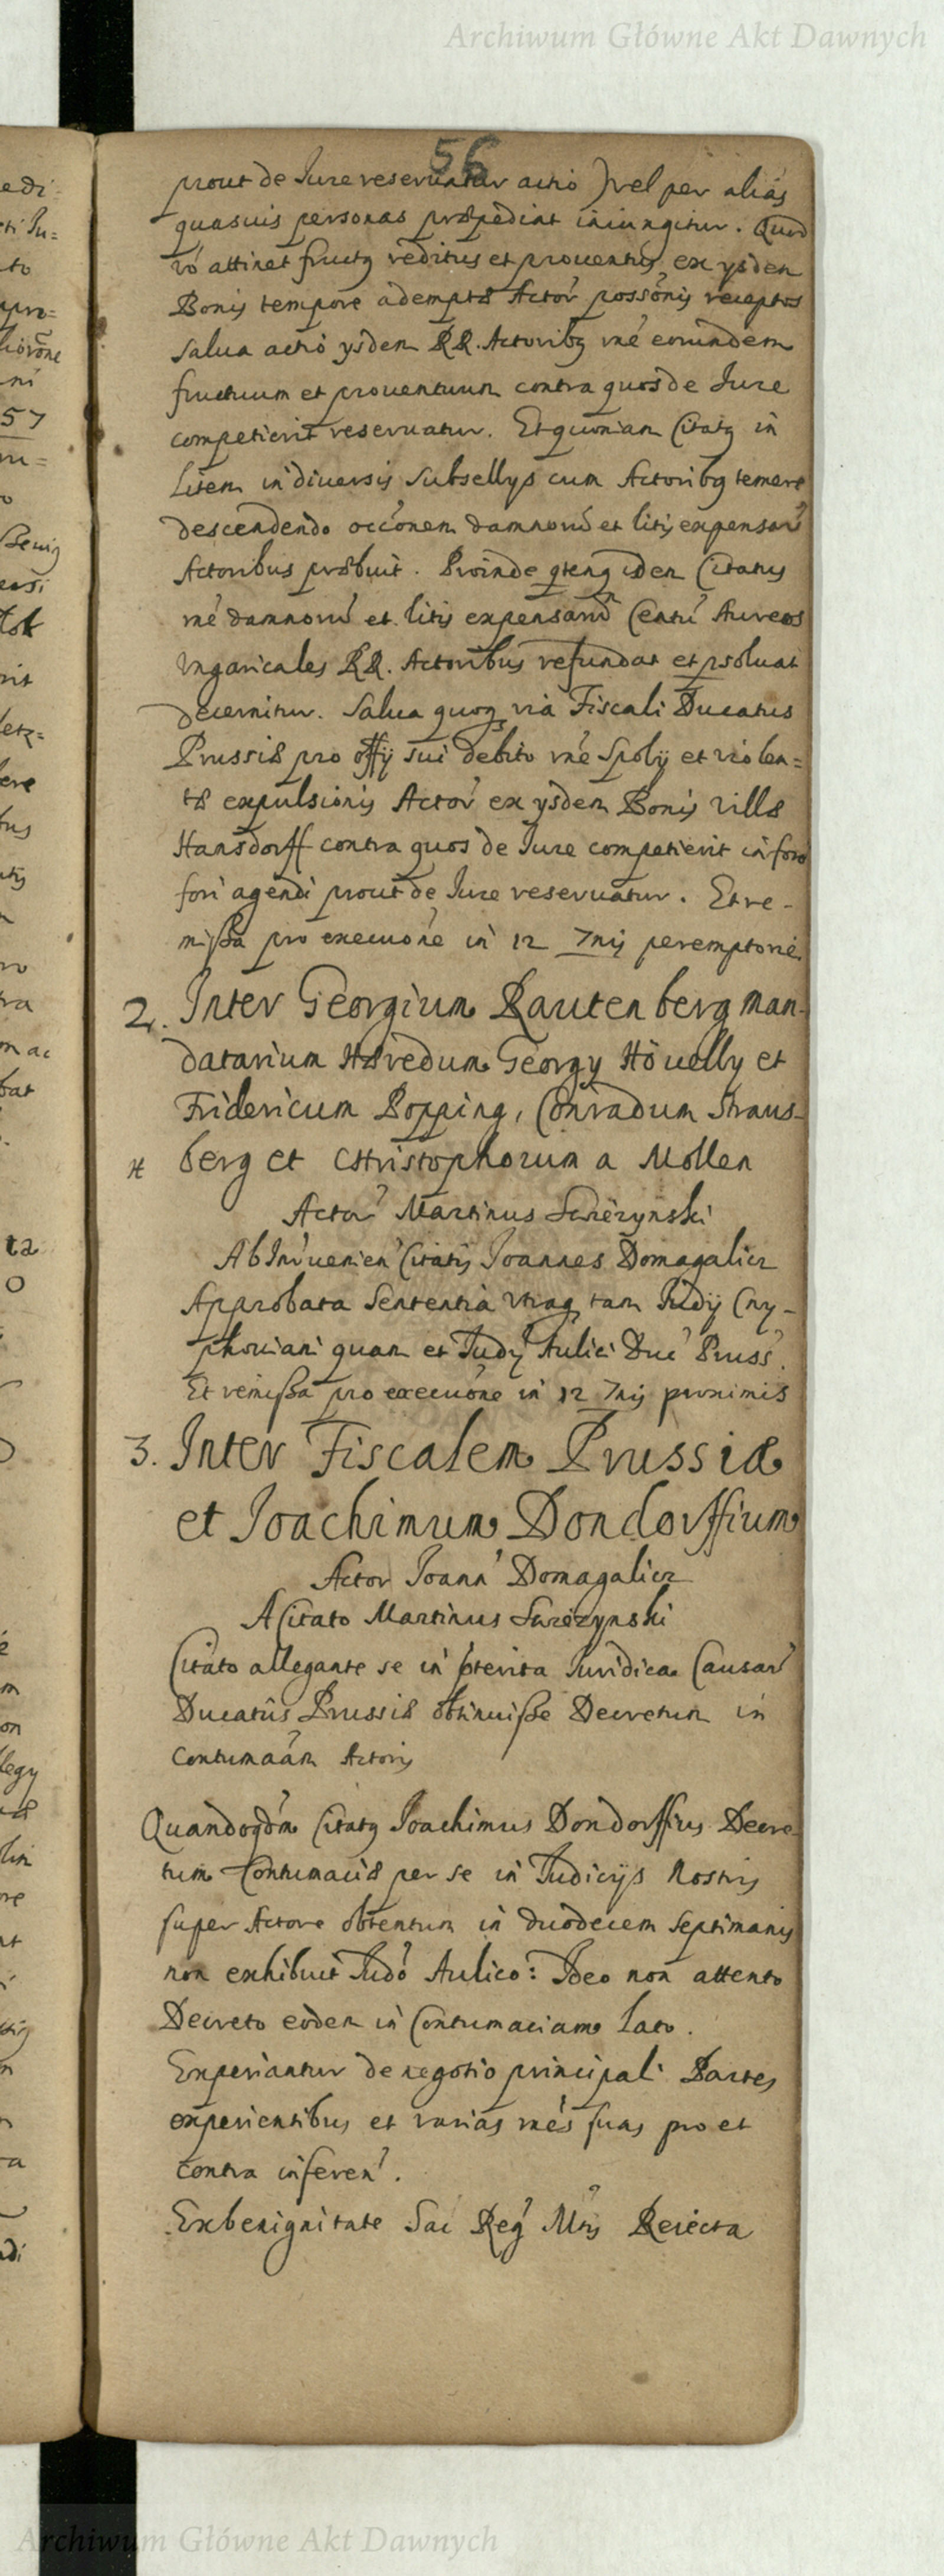 Archiwum Główne Akt Dawnych
56
prout de Jure reservatur actio) vel per alias
quasuis personas præpediat iniungitur. Quod
vó attinet fructq reditus et prouentus ex ysdem
Bonis tempore ademptæ Actor' possónis receptos
salua actió ysdem RR. Actoribq rné eorundem
fructuum et prouentuum contra quos de Jure
competierit reseruatur. Et quoniam Citatq in
Litem in diuersis Subsellys cum Actoribq temere
descendendo occónem damnorú et litis expensarú
Actoribus præbuit. Proinde qtenq idem Citatus
rné damnorú et litis expensarú Centú Aureos
Vngaricales RR. Actoribus refundat et psoluat
decernitur. Salua quoq via Fiscali Ducatus
Prussiæ pro offÿ sui debito rné Spolÿ et violen=
tæ expulsionis Actor' ex ysdem Bonis villæ
Hansdorff contra quos de Jure competierit in foro
fori agendi prout de Jure reseruatur. Et re-
missa pro executióne in 12 7nis peremptorié
2. Inter Georgium Rautenberg man-
datarium Hæredum Georgy Höuelly et
Fridericum Popping, Conradum Straus-
berg et CHristophorum a Mollen
H
Actor' Martinus Swiézynski
Ab Inuenien' Citatis Joannes Domagalicz
Approbata Sententia vtraq tam Judÿ Cny-
phouiani quam et Judÿ Aulici Duc' Pruss'.
Et remissa pro executióne in 12 7nis proximis
3. Inter Fiscalem Prussiæ
et Joachimum Dondorffium
Actor Joann' Domagalicz
A Citato Martinus Swiézynski
Citato allegante se in pterita Juridica Causar'
Ducatûs Prussiæ obtinuisse Decretum in
Contumaciam Actoris
Quandoqdm Citatq Joachimus Dondorffius Decre-
tum Contumaciæ per se in Judicÿs Nostris
super Actore obtentum in duodecem Septimanis
non exhibuit Judó Aulico: Ideo non attento
Decreto eodem in Contumaciam lato.
Experiantur de negotio principali Partes
experientibus et varias rnés suas pro et
contra inferen'.
Ex benignitate Sac Reg' Mtis Reiecta
Archiwum Główne Akt Dawnych